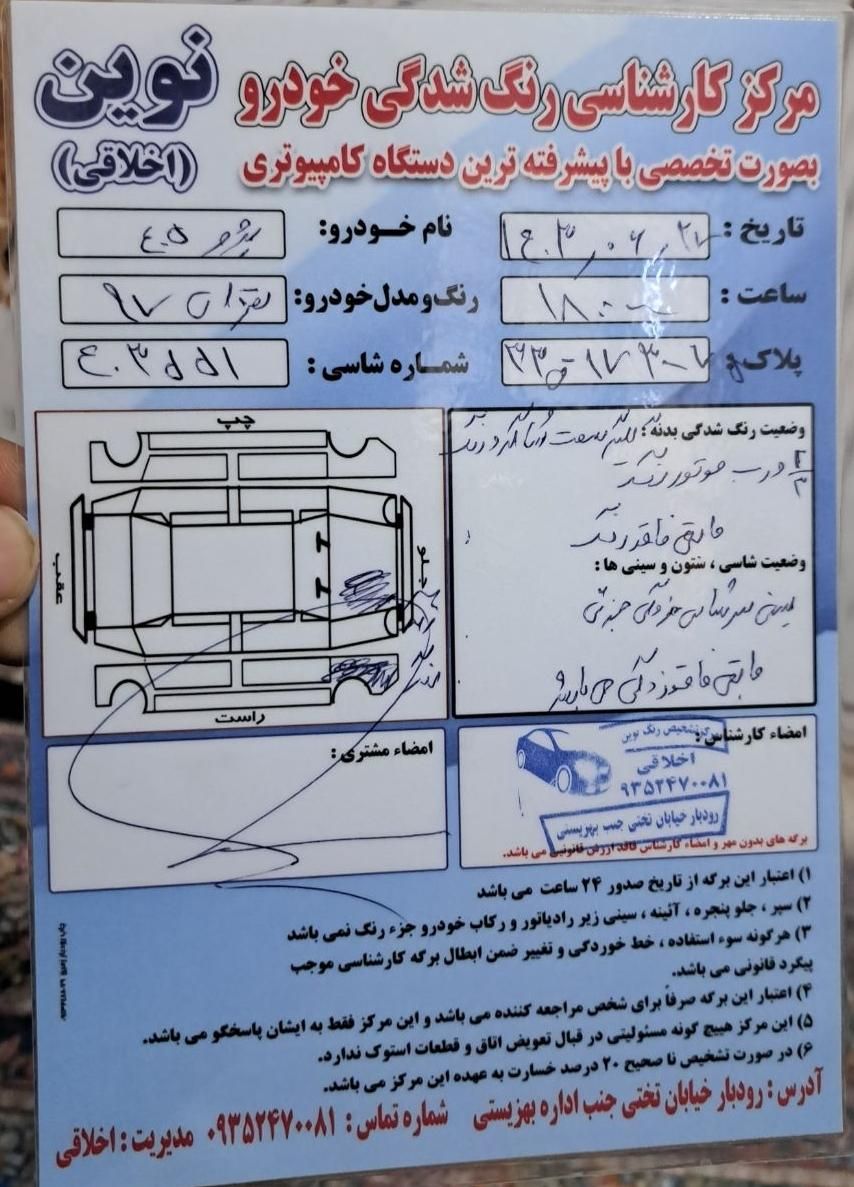 مرکز کارشناسی رنگ شدگی خودرو نوین
بصورت تخصصی با پیشرفته ترین دستگاه کامپیوتری (اخلاقی)
تاریخ : ۱۴۰۳,۰۶,۲۷ نام خودرو: پژو ۴۰۵
ساعت : ۱۸:۰۰ رنگ و مدل خودرو: نقره ای ۹۷
پلاک شمــاره شاسی : ۴۰۳۵۵۱
وضعیت رنگ شدگی بدنه :
درب موتور رنگ
مابقی فاقد رنگ
وضعیت شاسی ، ستون و سینی ها :
مابقی فاقد خوردگی می باشد
چپ
جلو
عقب
راست
امضاء کارشناس:
مرکز تشخیص رنگ نوین
اخلاقی
۰۹۳۵۲۴۷۰۰۸۱
رودبار خیابان تختی جنب بهزیستی
برگه های بدون مهر و امضاء کارشناس فاقد ارزش قانونی می باشد.
امضاء مشتری :
۱) اعتبار این برگه از تاریخ صدور ۲۴ ساعت می باشد
۲) سپر ، جلو پنجره ، آئینه ، سینی زیر رادیاتور و رکاب خودرو جزء رنگ نمی باشد
۳) هرگونه سوء استفاده ، خط خوردگی و تغییر ضمن ابطال برگه کارشناسی موجب
پیگرد قانونی می باشد.
۴) اعتبار این برگه صرفاً برای شخص مراجعه کننده می باشد و این مرکز فقط به ایشان پاسخگو می باشد.
۵) این مرکز هیچ گونه مسئولیتی در قبال تعویض اتاق و قطعات استوک ندارد.
۶) در صورت تشخیص نا صحیح ۲۰ درصد خسارت به عهده این مرکز می باشد.
آدرس : رودبار خیابان تختی جنب اداره بهزیستی شماره تماس : ۰۹۳۵۲۴۷۰۰۸۱ مدیریت : اخلاقی